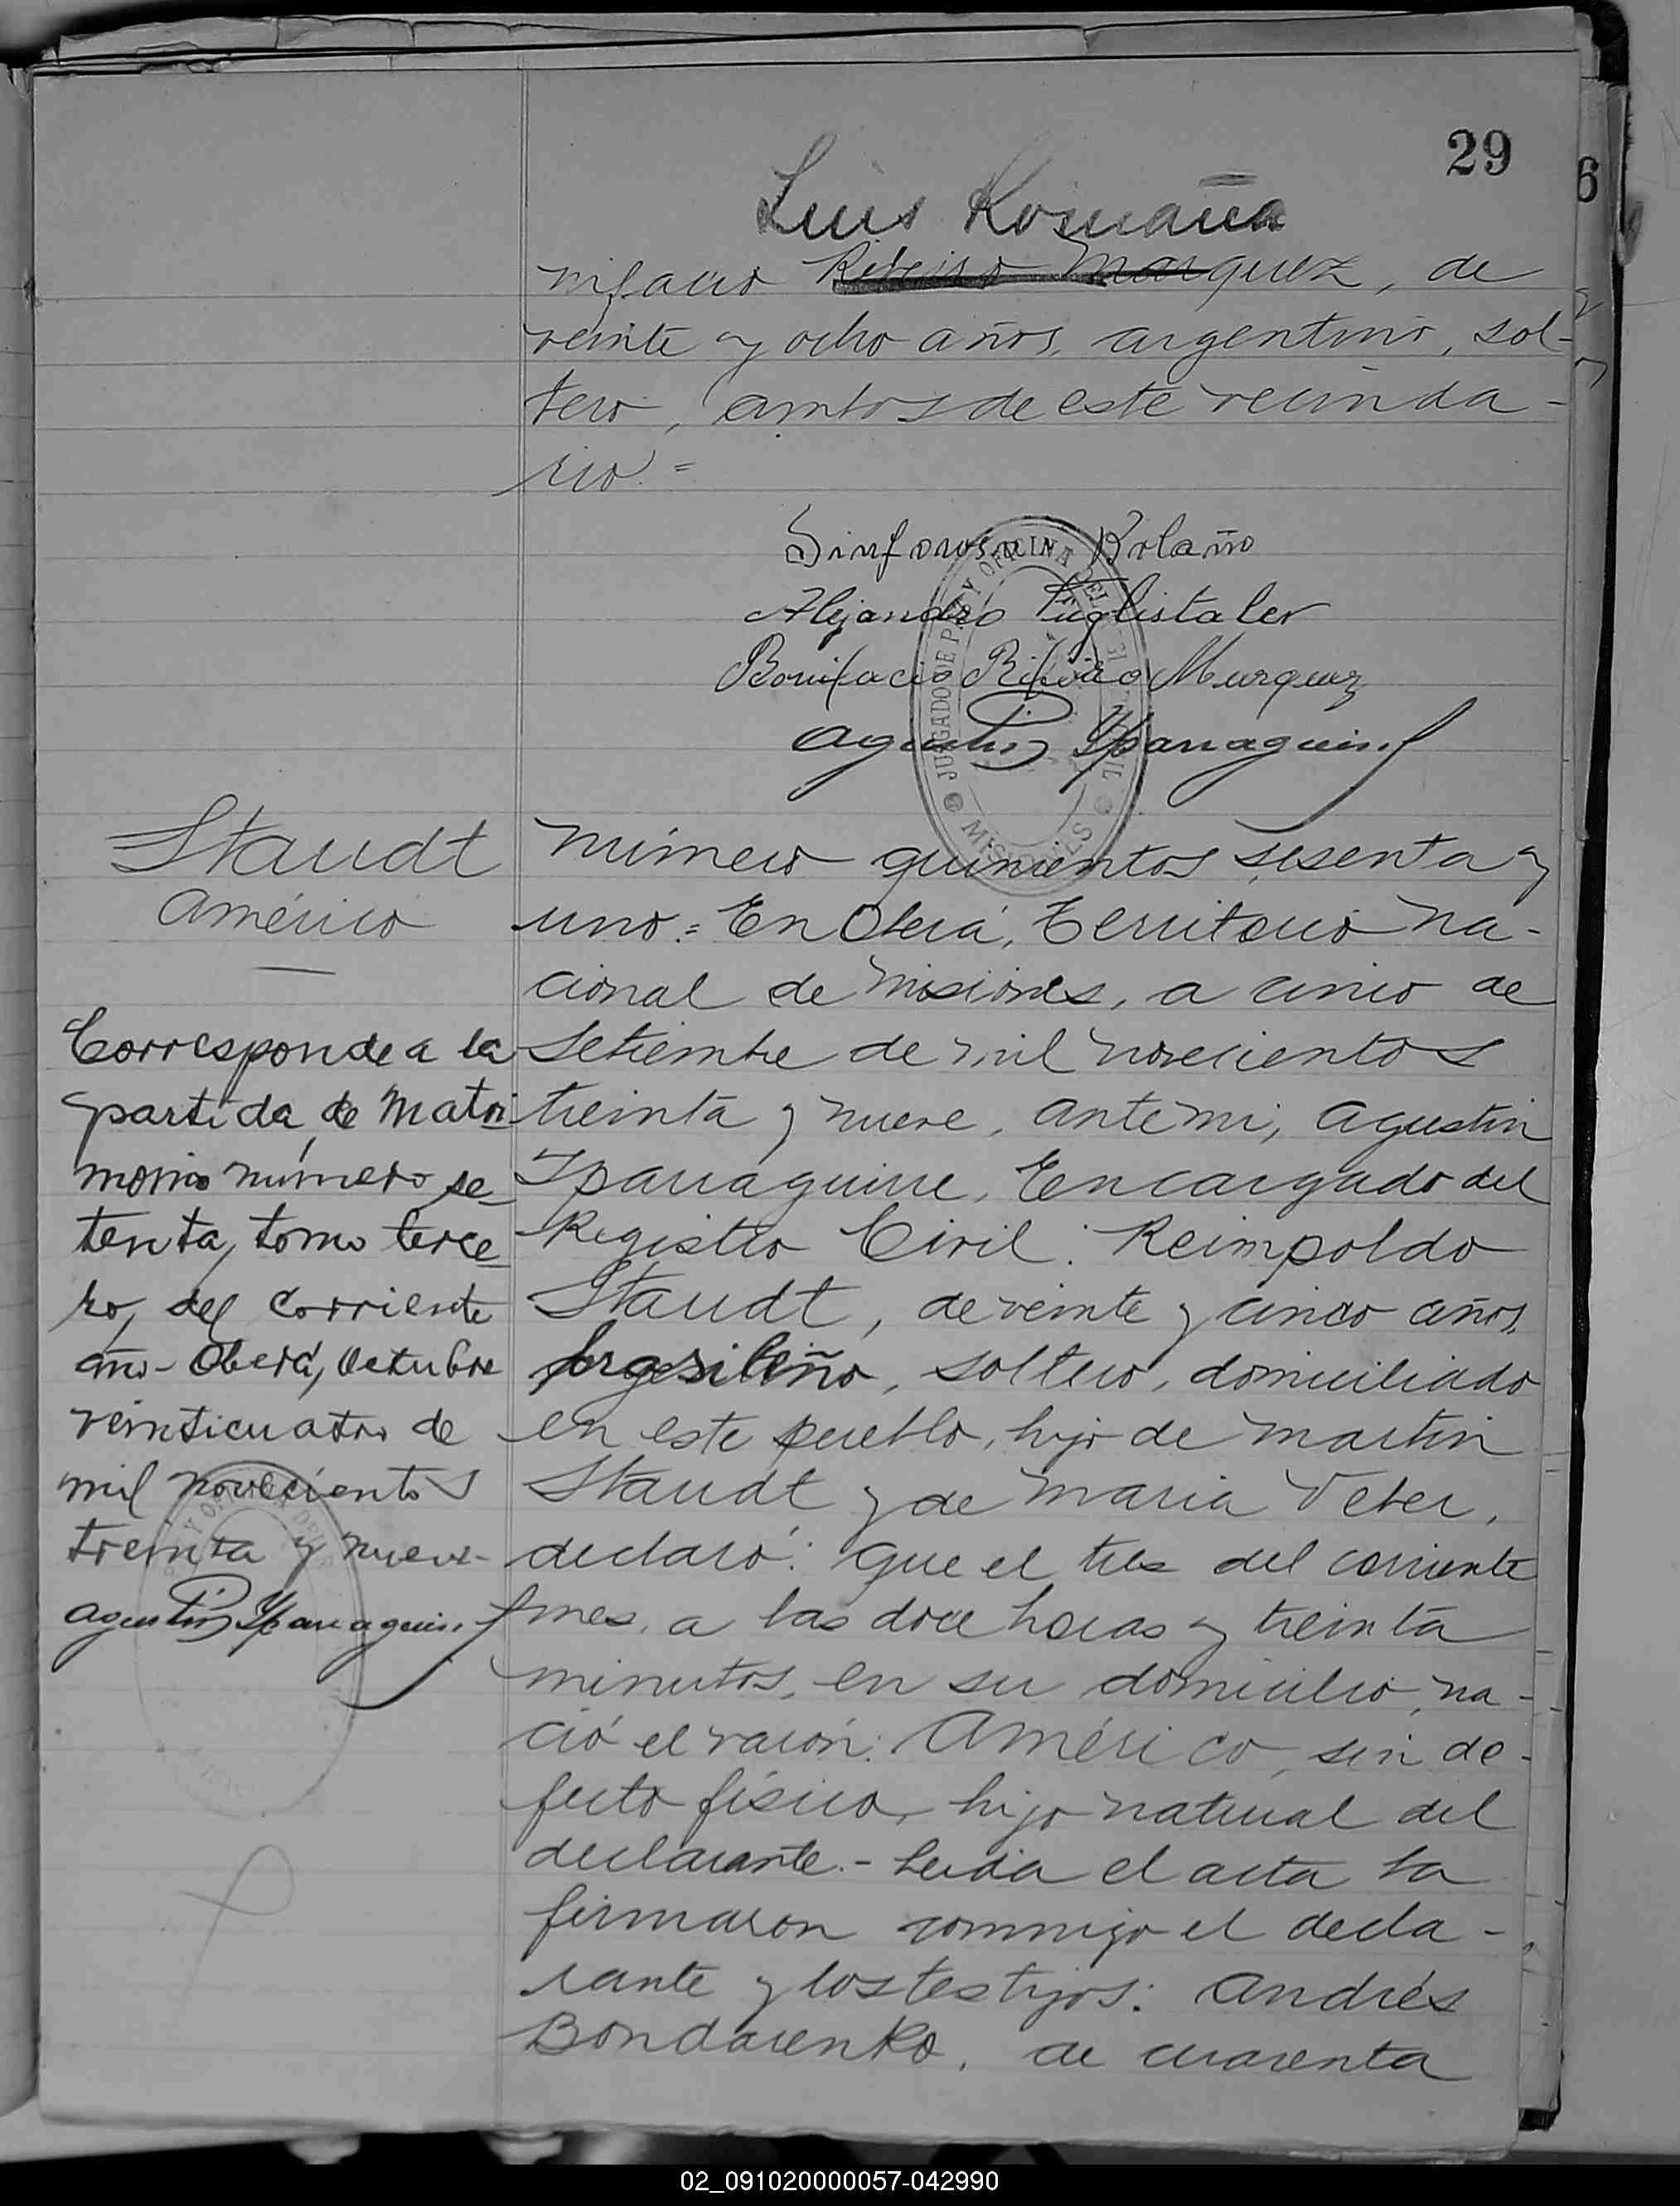 29
6
Luis Romaña
nifacio Ribeiro Marquez, de
veinte y ocho años, argentino, sol-
tero, ambos de este vecinda-
rio.=
Sinforosa Bolaño
Alejandro Füglistaler
Bonifacio Ribeiro Marquez
Agustin Yparraguirre
JUZGADO DE PAZ Y OFICINA DEL
MISIONES
Staudt
Américo
Corresponde a la
partida de Matri
monio número se
tenta, tomo terce
ro, del corriente
año - Oberá, Octubre
veinticuatro de
mil novecientos
treinta y nueve-
Agustin Yparraguirre
Número quinientos sesenta y
uno.= En Oberá, Territorio Na-
cional de Misiones, a cinco de
Setiembre de mil novecientos
treinta y nueve, ante mi, Agustin
Yparraguirre, Encargado del
Registro Civil: Reimpoldo
Staudt, de veinte y cinco años,
brasileño, soltero, domiciliado
en este pueblo, hijo de Martin
Staudt y de Maria Veber,
declaró: Que el tres del corriente
mes, a las doce horas y treinta
minutos, en su domicilio, na-
ció el varón: Américo, sin de-
fecto físico, hijo natural del
declarante.- Leida el acta la
firmaron conmigo el decla-
rante y los testigos: Andrés
Bondarenko, de cuarenta
02_091020000057-042990